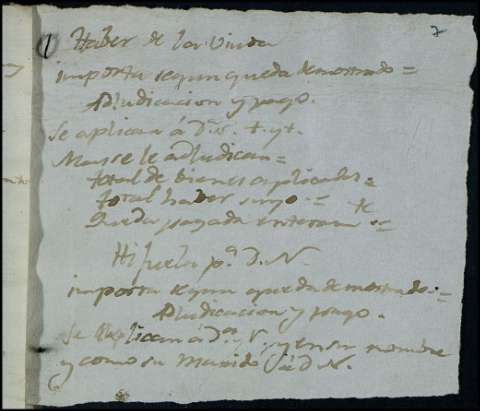 7
Haber de la Viuda
importa segun queda demostrado =
Adjudicacion y pago.
Se aplican á D.ª N. t. y t.
Mas se le adjudican =
total de bienes aplicados =
total haber suyo =
Queda pagada enteram.te =
Hijuela p.ª D. N.
importa segun queda demostrado =
Adjudicacion y pago.
Se aplican á D.ª N. y en su nombre
y como su Marido á D. N.